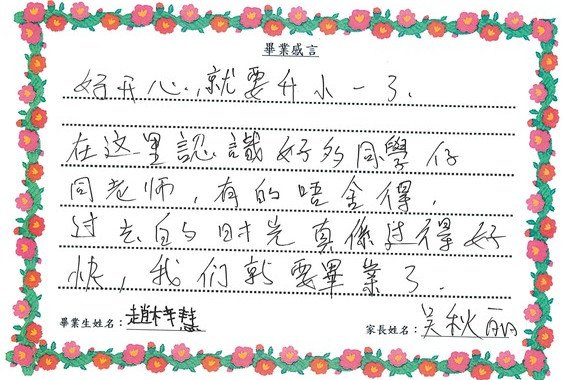 畢業感言
好开心,就要升小一了.
在这里認識好多同學仔
同老师,有的唔舍得,
过去的时光真係过得好
快,我们就要畢業了.
畢業生姓名:趙梓慧
家長姓名:吴秋丽